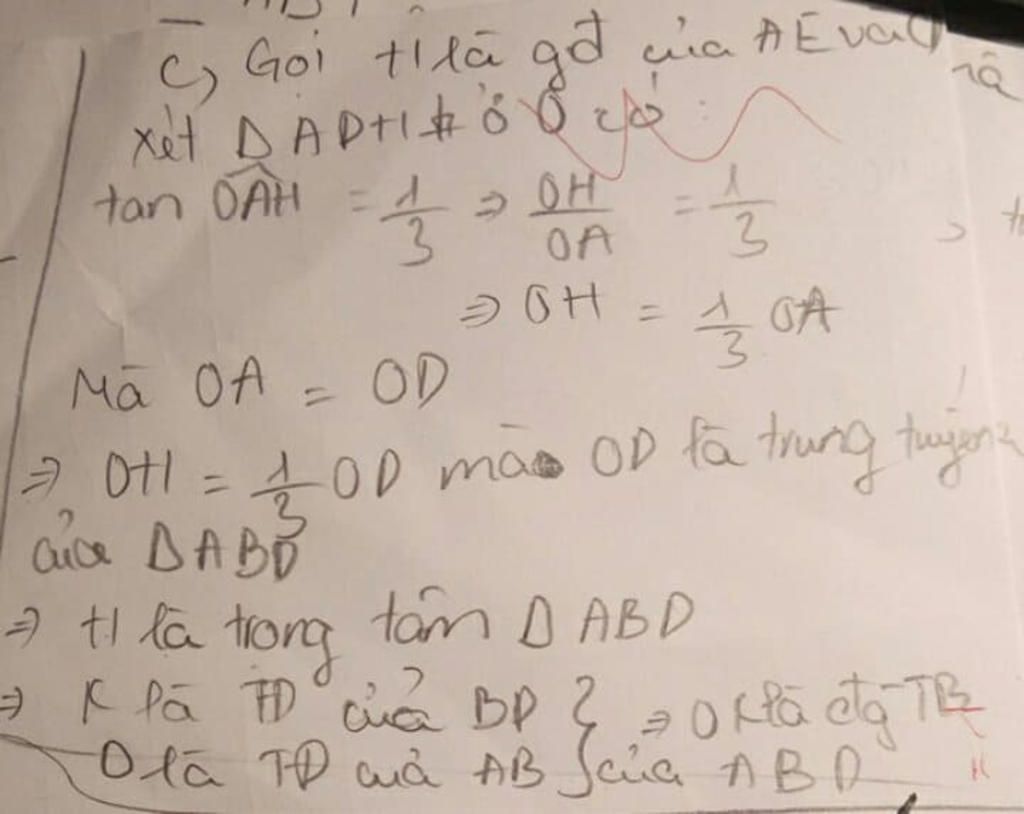 c, Gọi H là gđ của AE và
xét Δ ADH ở O có:
tan OAH = 1/3 ⇒ OH/OA = 1/3
⇒ OH = 1/3 OA
Mà OA = OD
⇒ OH = 1/3 OD mà OD là trung tuyến
của Δ ABD
⇒ H là trọng tâm Δ ABD
⇒ K là TĐ của BD } ⇒ OK là đg TB
O là TĐ của AB } của ABD